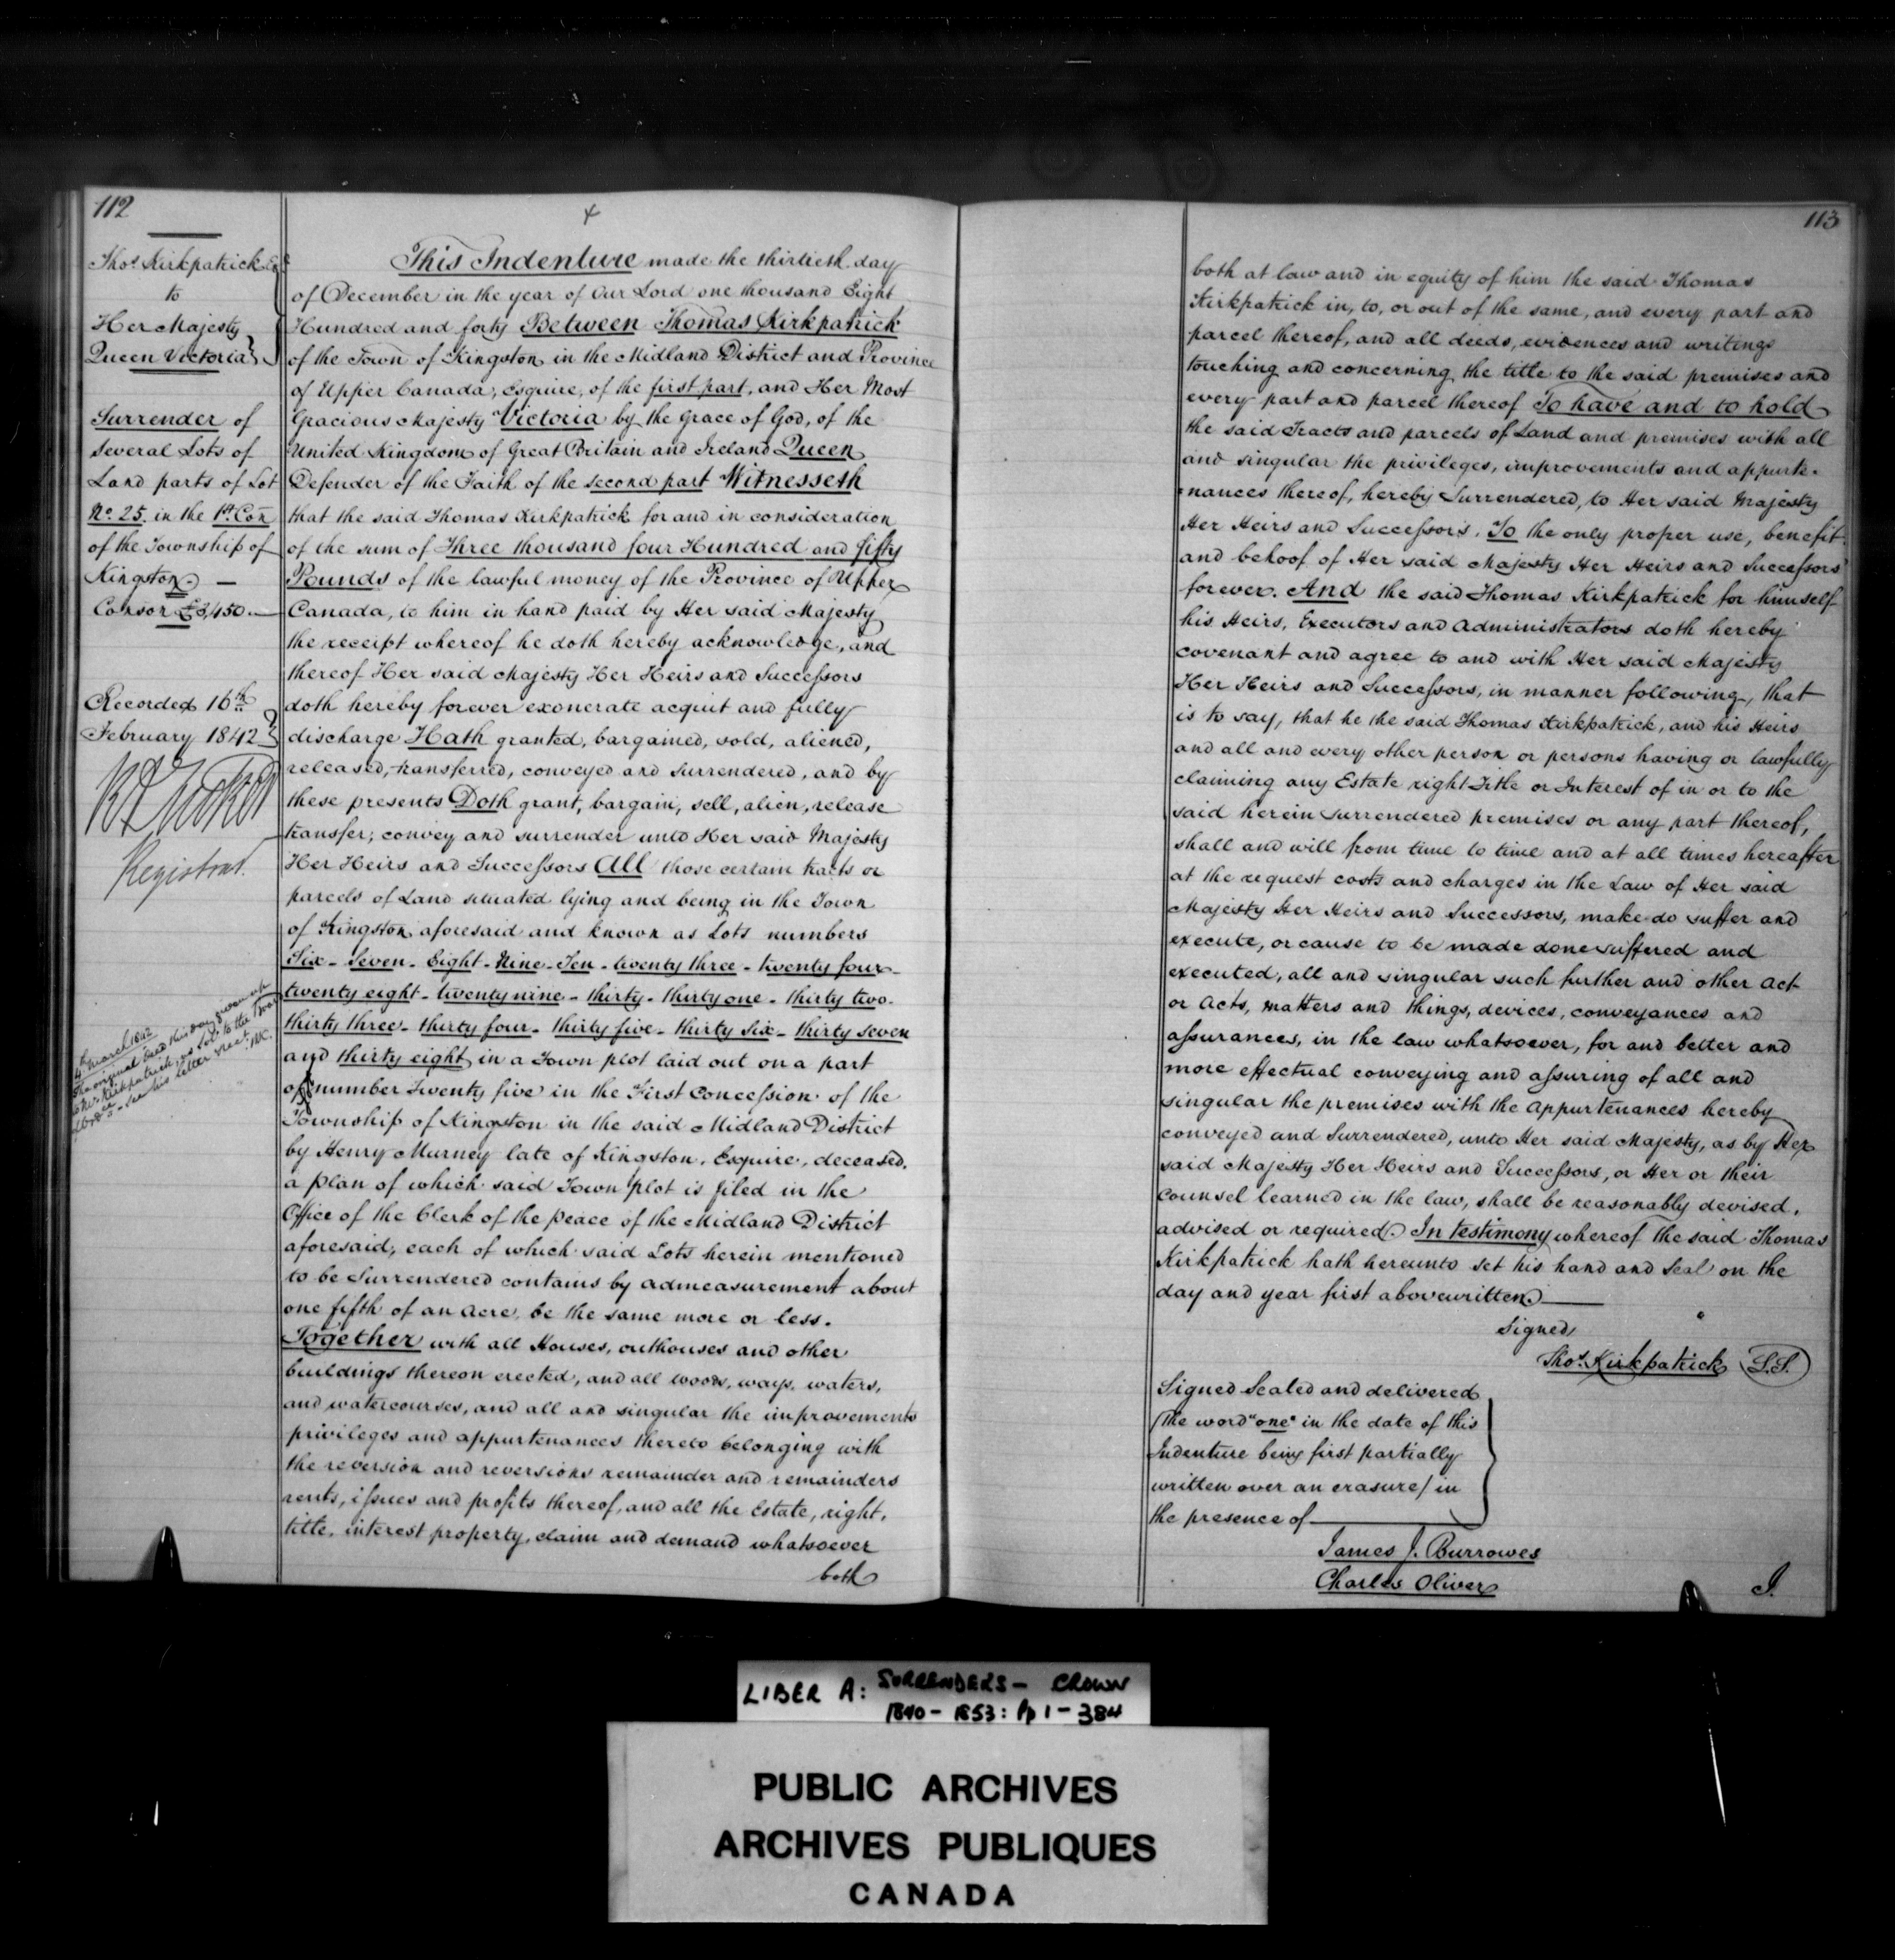 112
Thos. Kirkpatrick Esq
to
Her Majesty
Queen Victoria
Surrender of
several Lots of
Land parts of Lot
No. 25. in the 1st. Con
of the Township of
Kingston. —
Consor £3,450 —
Recorded 16th
February 1842
Registrar.
4th March 1842
The original Deed this day given up
to Mr. Kirkpatrick
see his letter rect.
+
This Indenture made the thirtieth day
of December in the year of Our Lord one thousand Eight
Hundred and forty Between Thomas Kirkpatrick
of the Town of Kingston in the Midland District and Province
of Upper Canada, Esquire, of the first part, and Her Most
Gracious Majesty Victoria by the Grace of God, of the
United Kingdom of Great Britain and Ireland Queen
Defender of the Faith of the second part Witnesseth
that the said Thomas Kirkpatrick for and in consideration
of the sum of Three thousand four Hundred and fifty
Pounds of the lawful money of the Province of Upper
Canada, to him in hand paid by Her said Majesty
the receipt whereof he doth hereby acknowledge, and
thereof Her said Majesty Her Heirs and Successors
doth hereby forever exonerate acquit and fully
discharge Hath granted, bargained, sold, aliened,
released, transferred, conveyed and surrendered, and by
these presents Doth grant, bargain, sell, alien, release
transfer, convey and surrender unto Her said Majesty
Her Heirs and Successors All those certain tracts or
parcels of Land situated lying and being in the Town
of Kingston aforesaid and known as Lots numbers
Six - Seven - Eight - Nine - Ten - twenty three - twenty four -
twenty eight - twenty nine - thirty - thirty one - thirty two -
thirty three - thirty four - thirty five - thirty six - thirty seven
and thirty eight in a Town plot laid out on a part
of number Twenty five in the First Concession of the
Township of Kingston in the said Midland District
by Henry Murney late of Kingston, Esquire, deceased.
a plan of which said Town plot is filed in the
Office of the Clerk of the Peace of the Midland District
aforesaid, each of which said Lots herein mentioned
to be Surrendered contains by admeasurement about
one fifth of an acre, be the same more or less.
Together with all Houses, outhouses and other
buildings thereon erected, and all woods, ways, waters,
and watercourses, and all and singular the improvements
privileges and appurtenances thereto belonging with
the reversion and reversions remainder and remainders
rents, issues and profits thereof, and all the Estate, right,
title, interest property, claim and demand whatsoever
both
113
both at law and in equity of him the said Thomas
Kirkpatrick in, to, or out of the same, and every part and
parcel thereof, and all deeds, evidences and writings
touching and concerning the title to the said premises and
every part and parcel thereof To have and to hold
the said Tracts and parcels of Land and premises with all
and singular the privileges, improvements and appurte-
nances thereof, hereby Surrendered, to Her said Majesty
Her Heirs and Successors. To the only proper use, benefit
and behoof of Her said Majesty Her Heirs and Successors
forever. And the said Thomas Kirkpatrick for himself
his Heirs, Executors and Administrators doth hereby
covenant and agree to and with Her said Majesty
Her Heirs and Successors, in manner following, that
is to say, that he the said Thomas Kirkpatrick, and his Heirs
and all and every other person or persons having or lawfully
claiming any Estate right Title or Interest of in or to the
said herein surrendered premises or any part thereof,
shall and will from time to time and at all times hereafter
at the request costs and charges in the Law of Her said
Majesty Her Heirs and Successors, make do suffer and
execute, or cause to be made done suffered and
executed, all and singular such further and other Act
or Acts, matters and things, devices, conveyances and
assurances, in the law whatsoever, for and better and
more effectual conveying and assuring of all and
singular the premises with the appurtenances hereby
conveyed and Surrendered, unto Her said Majesty, as by Her
said Majesty Her Heirs and Successors, or Her or their
Counsel learned in the law, shall be reasonably devised,
advised or required. In testimony whereof the said Thomas
Kirkpatrick hath hereunto set his hand and Seal on the
day and year first abovewritten. —
Signed
Thos. Kirkpatrick L.S.
Signed Sealed and delivered
(the word "one" in the date of this
Indenture being first partially
written over an erasure) in
the presence of
James J. Burrowes
Charles Oliver
I.
LIBER A: SURRENDERS - CROWN
1840 - 1853: Pp 1 - 384
PUBLIC ARCHIVES
ARCHIVES PUBLIQUES
CANADA